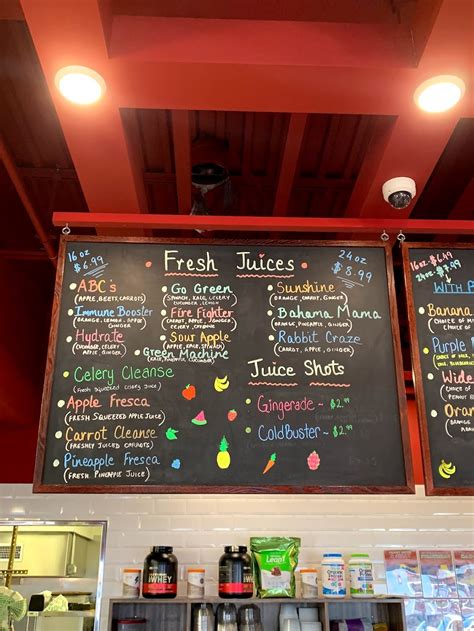 16 oz
$6.99
Fresh Juices
24 oz
$8.99
ABC's
(APPLE, BEETS, CARROTS)
Immune Booster
(ORANGE, LEMON, APPLE
GINGER)
Hydrate
(CUCUMBER, CELERY
APPLE, GINGER)
Celery Cleanse
(FRESH SQUEEZED CELERY JUICE)
Apple Fresca
(FRESH SQUEEZED APPLE JUICE)
Carrot Cleanse
(FRESHLY JUICED CARROTS)
Pineapple Fresca
(FRESH PINEAPPLE JUICE)
Go Green
(SPINACH, KALE, CELERY
CUCUMBER, LEMON)
Fire Fighter
(CARROT, APPLE, GINGER
CELERY, CAYENNE)
Sour Apple
Green Machine
Sunshine
(ORANGE, CARROT, GINGER)
Bahama Mama
(ORANGE, PINEAPPLE, GINGER)
Rabbit Craze
(CARROT, APPLE, GINGER)
Juice Shots
Gingerade ~ $2.99
ColdBuster ~ $2.99
16 oz $6.49
24 oz
WITH
Banana
CHOICE OF
Purple
CHOICE OF M
Wide
PEANUT
Orange
WHEY
WHEY